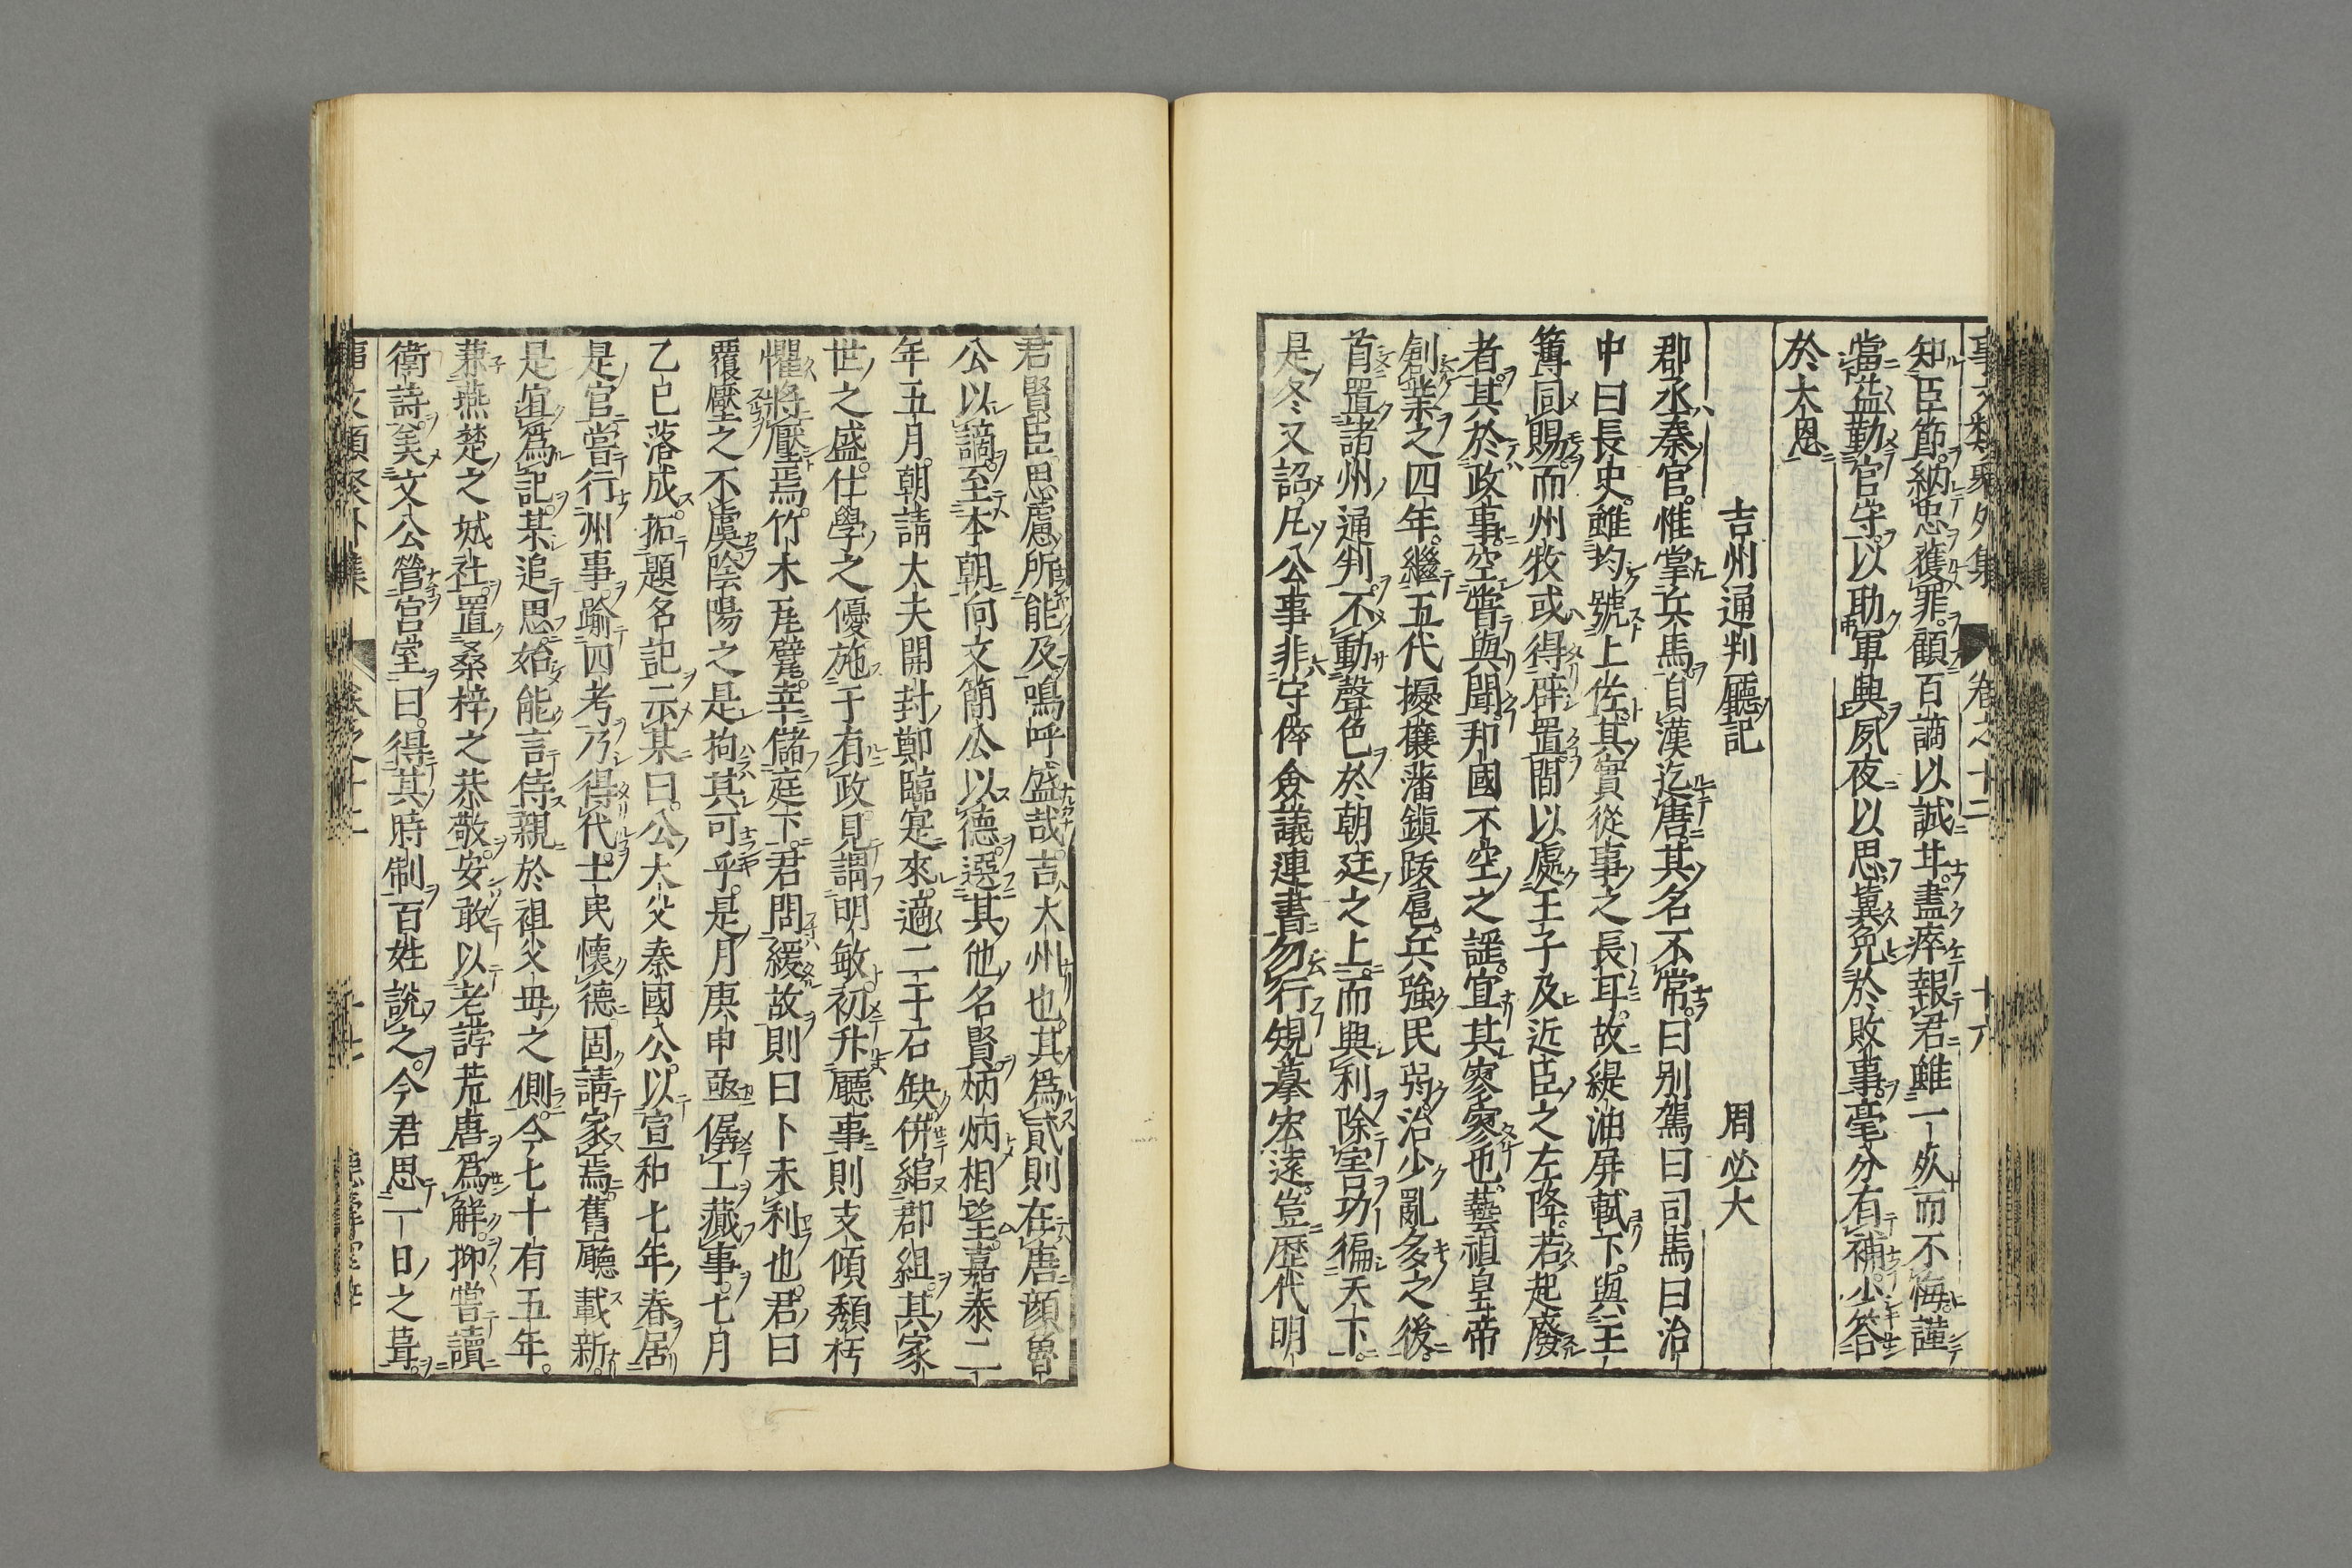 事文類聚外集 卷之十二 十六
知臣節納忠獲罪。顧百謫以誠甘。盡瘁報君雖一夊而不悔謹
當益勤官守。以助軍興。夙夜以思冀免於敗事。毫分有補。少答
於大恩
吉州通判廳記 周必大
郡丞秦官。惟掌兵馬。自漢迄唐。其名不常。曰別駕曰司馬曰治
中曰長史。雖均號上佐。其實從事之長耳。故緹油屏軾下。與主
簿同賜。而州牧或得辟置。間以處王子及近臣之左降。若起廢
者。其於政事。空嘗與聞。邦國不空之謡。宜其寥寥也。藝祖皇帝
創業之四年。繼五代擾攘藩鎮跋扈。兵強民弱。治少亂多之後。
首置諸州通判。不動聲色於朝廷之上。而興利除害功徧天下。
是冬又詔。凡公事非守倅僉議連書勿行。規摹宏遠。豈歷代明
君賢臣思慮所能及。嗚呼盛哉。吉大州也。其爲貳則在唐顔魯
公以謫至。本朝向文簡公以德選。其他名賢。炳炳相望。嘉泰二
年五月。朝請大夫開封鄭臨寔來。適二千石缺。併綰郡組。其家
世之盛。仕學之優施于有政。見謂明敏。初升廳事則支傾頽朽
懼將壓焉。竹木瓦甓。幸儲庭下。君問緩故則曰卜未利也。君曰
覆壓之不虞。陰陽之是拘其可乎。是月庚申亟僝工蕆事。七月
乙巳落成。拓題名記示某曰。公大父秦國公。以宣和七年春居
是官。嘗行州事。踰四考乃得代。士民懷德。固請家焉。舊廳載新。
是宜爲記。某追思。始能言侍親於祖父母之側。今七十有五年。
兼燕楚之城社。置桑梓之恭敬。安敢以老誖荒唐爲解。抑嘗讀
衛詩。美文公營宮室曰。得其時制。百姓說之。今君思一日之葺。
事文類聚外集 卷之十二 十七